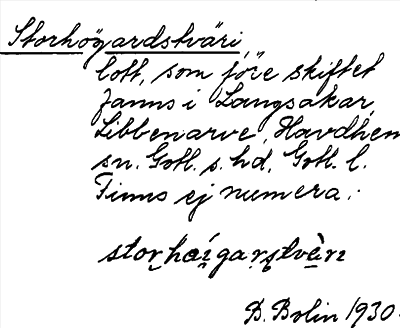 Storhögardstväri,
lott, som före skiftet
fanns i Langsakar,
Libbenarve, Havdhem
sn. Gotl. s. hd, Gotl. l.
Finns ej numera.
D. Bolin 1930.